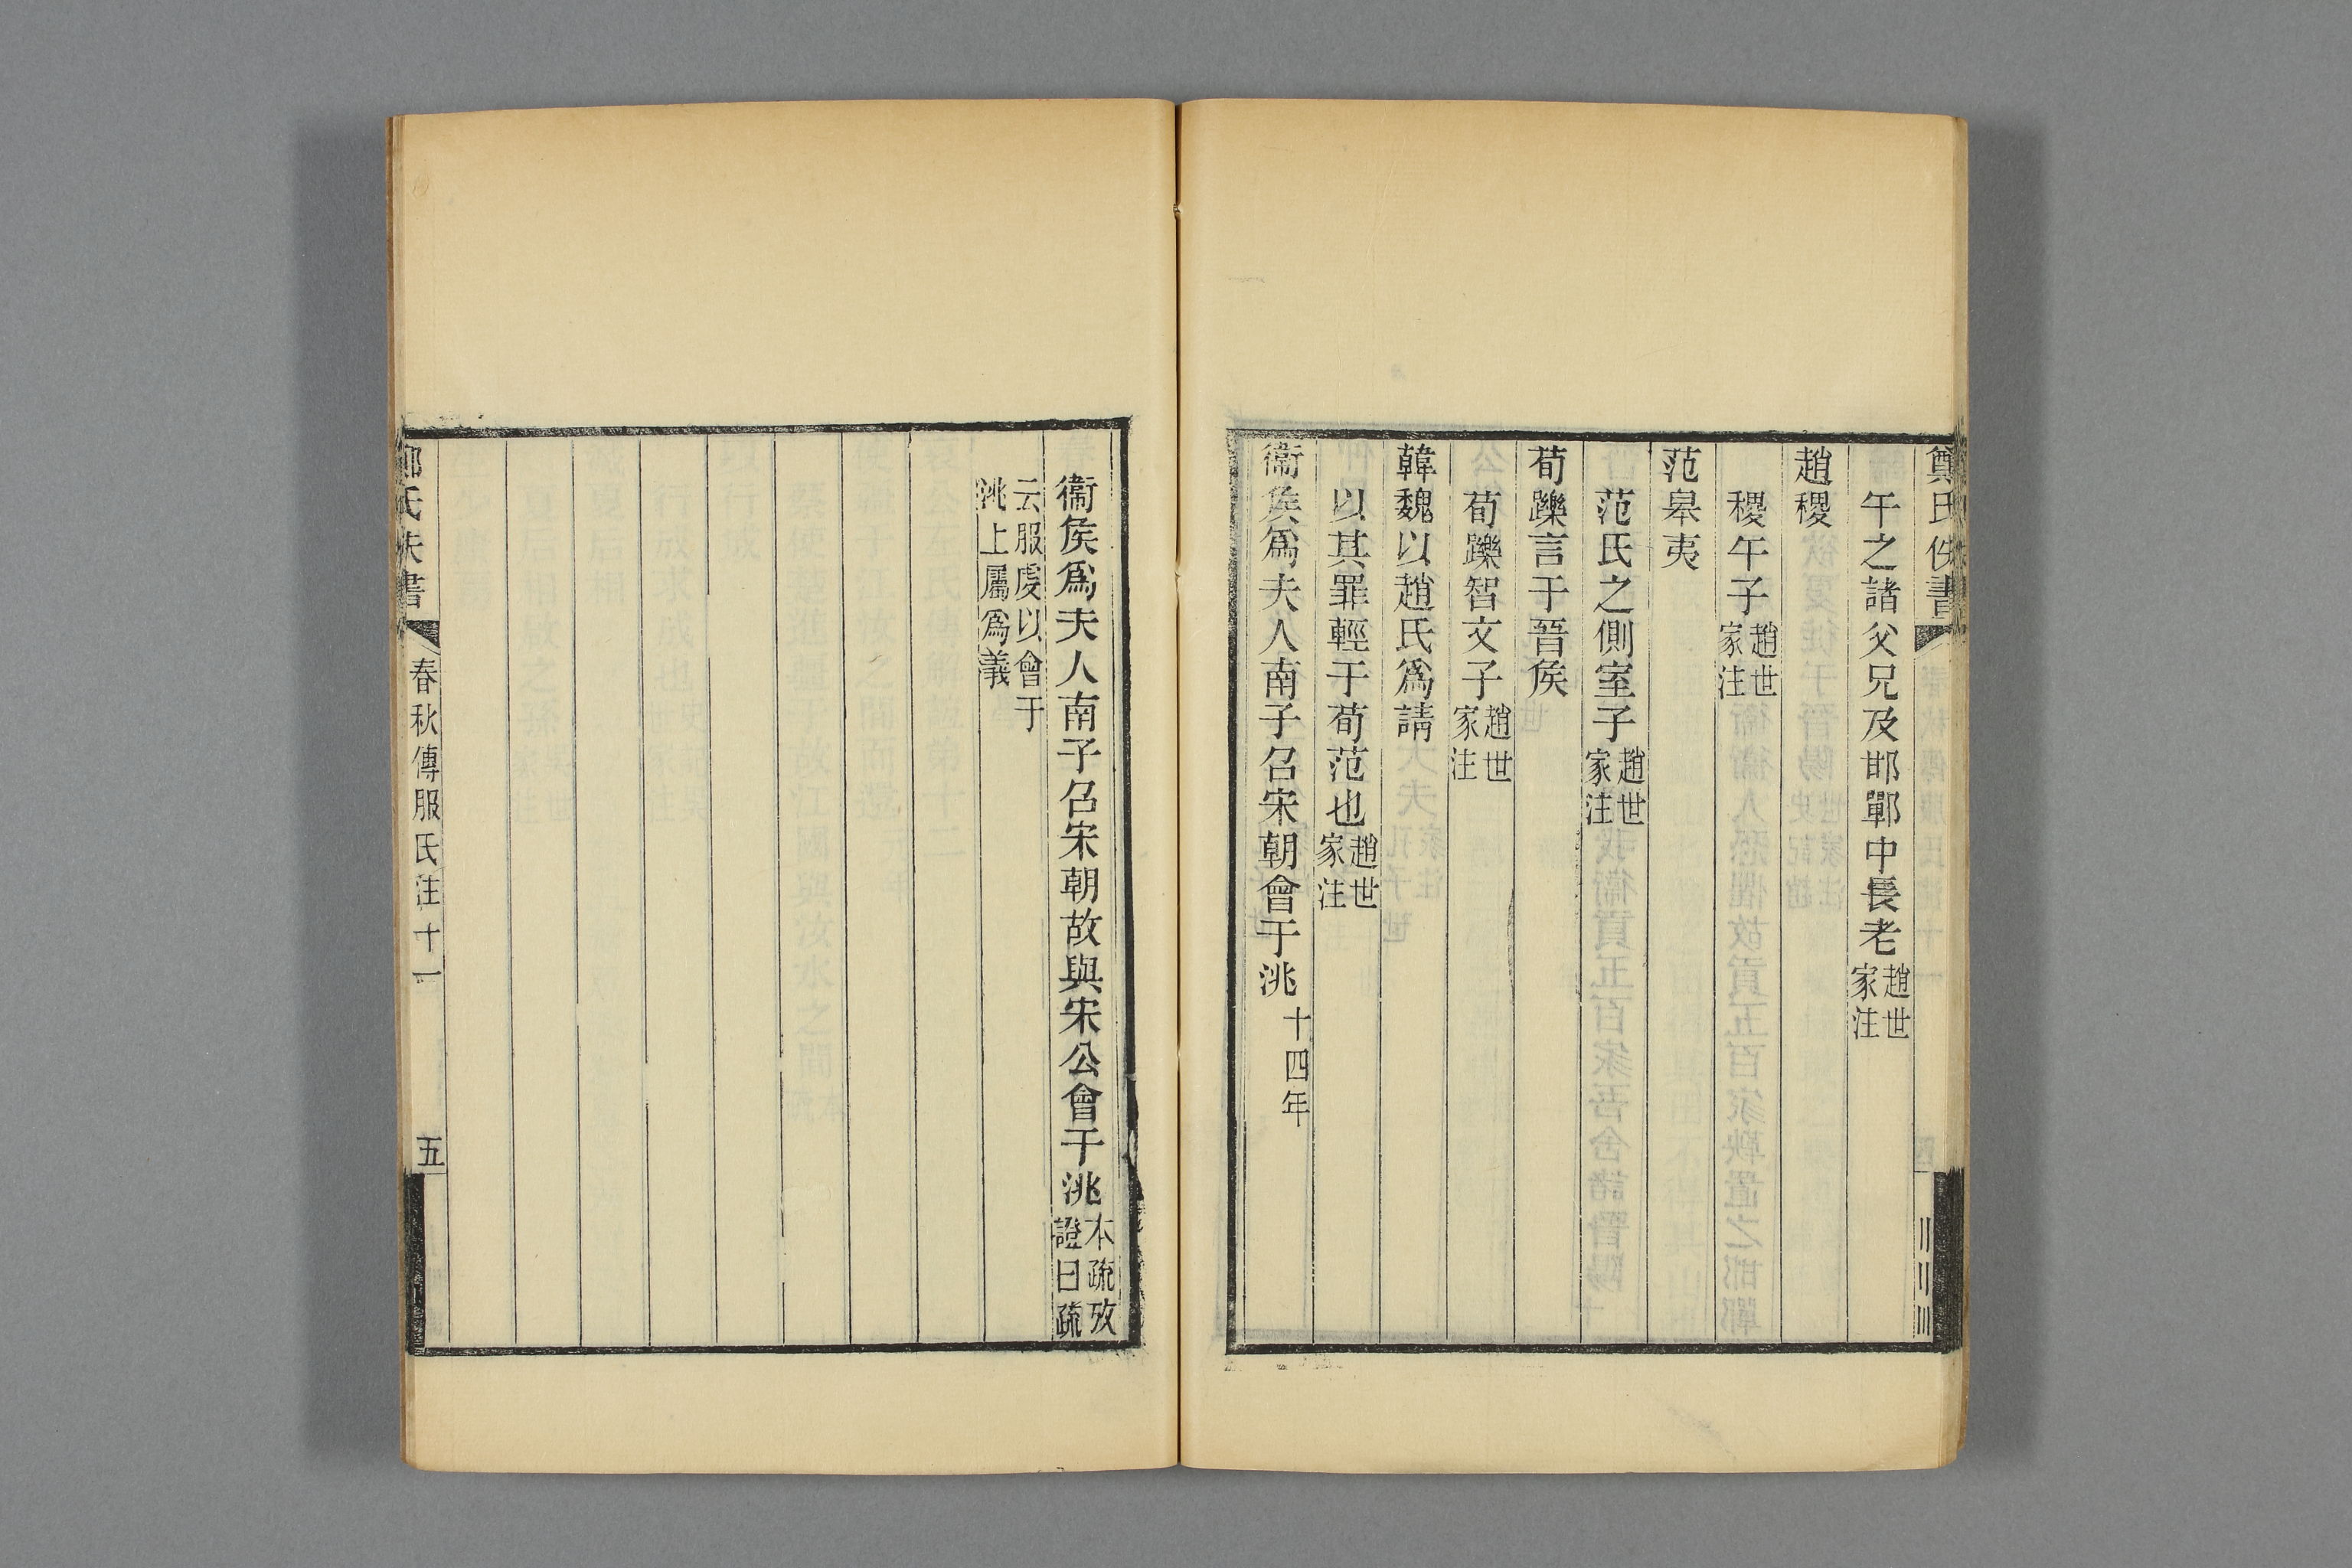 鄭氏佚書
午之諸父兄及邯鄲中長老趙世家注
趙稷
稷午子趙世家注
范皋夷
范氏之側室子趙世家注
荀躒言于晉矦
荀躒智文子趙世家注
韓魏以趙氏爲請
以其罪輕于荀范也趙世家注
衞矦爲夫人南子召宋朝會于洮十四年
衞矦爲夫人南子召宋朝故與宋公會于洮本疏攷證曰疏
云服虔以會于
洮上屬爲義
鄭氏佚書
春秋傳服氏注十一
五